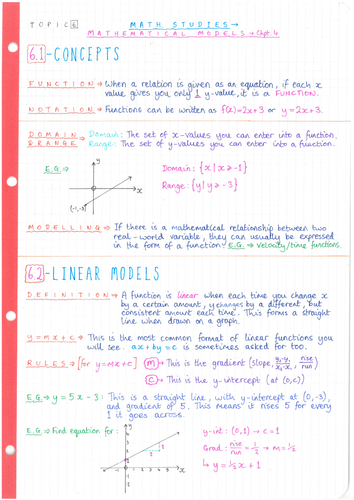 TOPIC 6
MATH STUDIES →
MATHEMATICAL MODELS → Chpt 4
6.1 - CONCEPTS
FUNCTION → When a relation is given as an equation, if each x
value gives you only 1 y-value, it is a FUNCTION.
NOTATION → Functions can be written as f(x)=2x+3 or y=2x+3.
DOMAIN → Domain: The set of x-values you can enter into a function.
& RANGE Range: The set of y-values you can enter into a function.
E.G. →
y
x
(-1,-3)
Domain: {x | x ≥ -1}
Range: {y | y ≥ -3}
MODELLING → If there is a mathematical relationship between two
real-world variable, they can usually be expressed
in the form of a function! E.G. → Velocity/time functions.
6.2 - LINEAR MODELS
DEFINITION → A function is linear when each time you change x
by a certain amount, y changes by a different, but
consistent amount each time. This forms a straight
line when drawn on a graph.
y=mx+c → This is the most common format of linear functions you
will see. ax+by=c is sometimes asked for too.
RULES → [for y=mx+c] m → This is the gradient (slope, y₂-y₁/x₂-x₁, rise/run)
c → This is the y-intercept (at (0,c))
E.G → y = 5x - 3 : This is a straight line, with y-intercept at (0,-3),
and gradient of 5. This means it rises 5 for every
1 it goes across.
E.G. → Find equation for:
y
x
y-int: (0,1) → c=1
Grad: rise/run = 1/2 → m = 1/2
↳ y = 1/2 x + 1